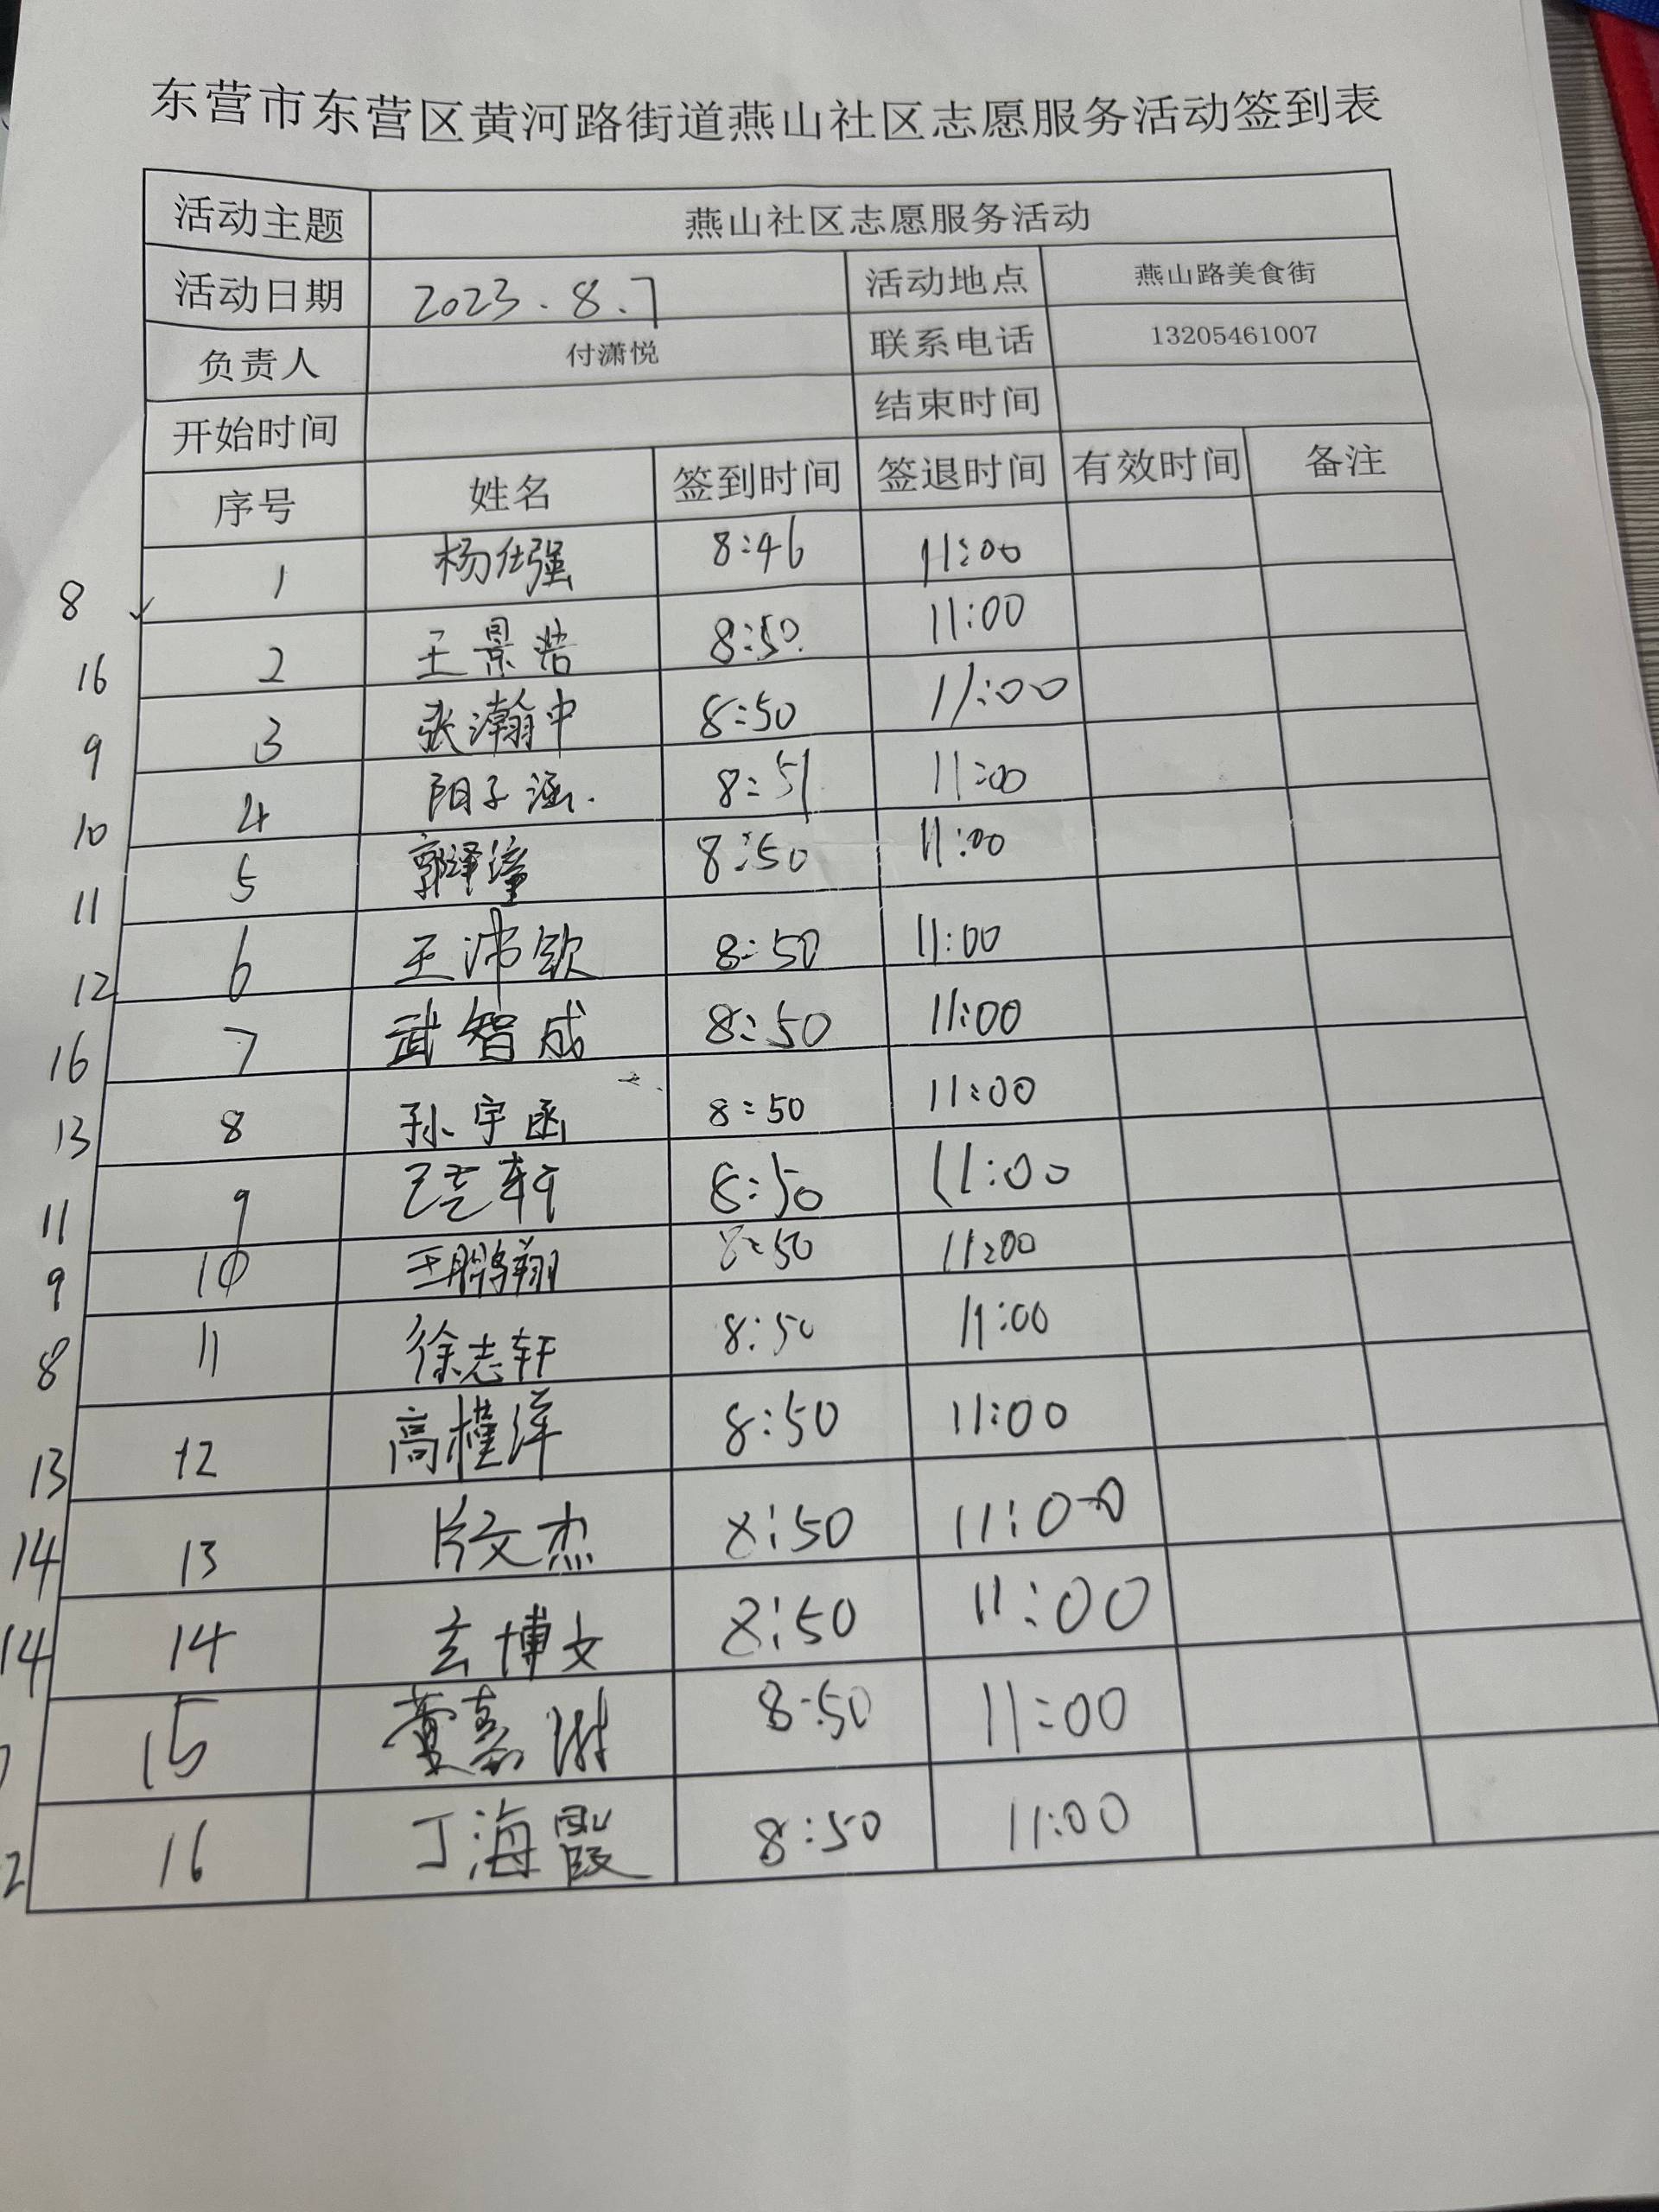 东营市东营区黄河路街道燕山社区志愿服务活动签到表
活动主题 燕山社区志愿服务活动
活动日期 2023.8.7 活动地点 燕山路美食街
负责人 付潇悦 联系电话 13205461007
开始时间 结束时间
序号 姓名 签到时间 签退时间 有效时间 备注
8 1 杨仕强 8:46 11:00
16 2 王景浩 8:50 11:00
9 3 张瀚中 8:50 11:00
10 4 阳子涵 8:51 11:00
11 5 郭泽潼 8:50 11:00
12 6 王沛钦 8:50 11:00
16 7 武智成 8:50 11:00
13 8 孙宇函 8:50 11:00
11 9 轩 8:50 11:00
9 10 王鹏翔 8:50 11:00
8 11 徐志轩 8:50 11:00
13 12 高槿洋 8:50 11:00
14 13 文杰 8:50 11:00
14 14 玄博文 8:50 11:00
15 董嘉 8:50 11:00
2 16 丁海霞 8:50 11:00